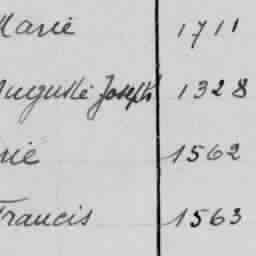 Marie 1711
Auguste Joseph 1328
rie 1562
Francis 1563